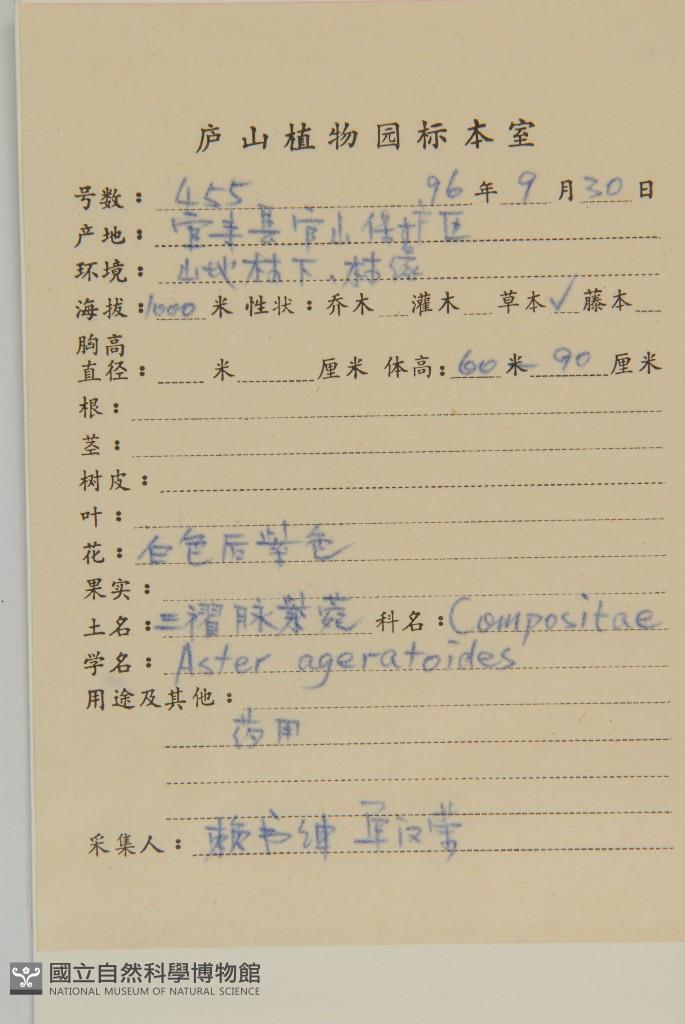 庐山植物园标本室
号数：455 96年9月30日
产地：宜丰县官山保护区
环境：山坡林下、林缘
海拔：1000米 性状：乔木 灌木 草本✓ 藤本
胸高
直径： 米 厘米 体高：60米-90厘米
根：
茎：
树皮：
叶：
花：白色后紫色
果实：
土名：三褶脉紫菀 科名：Compositae
学名：Aster ageratoides
用途及其他：
药用
采集人：赖书绅 汉
國立自然科學博物館
NATIONAL MUSEUM OF NATURAL SCIENCE